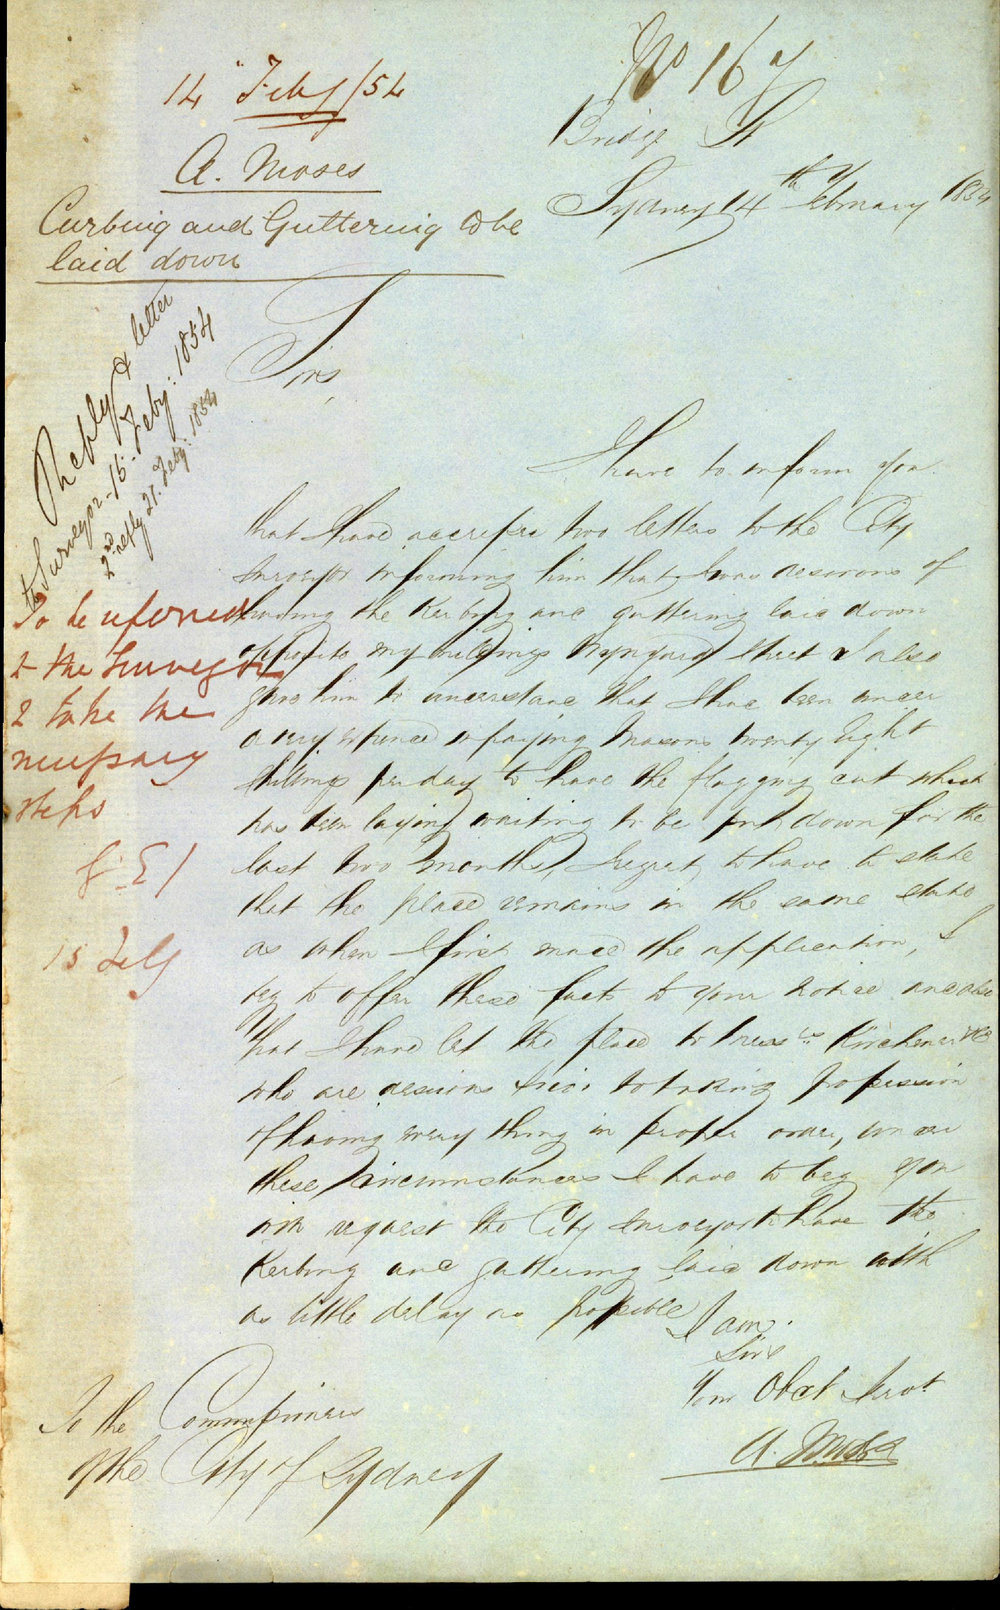 No 167
14 Feby/54
Bridge St
A. Moses
Sydney 14th February 1854
Curbing and Guttering to be
laid down
Reply & letter
to Surveyor 15. Feby: 1854
2nd reply 21. Feby: 1854
Sirs,
I have to inform you
that I have two letters to the City
Surveyor informing him that I was desirous of
having the Kerbing and guttering laid down
opposite my buildings Wynyard Street I also
gave him to understand that I have been under
a very expence in paying Masons twenty Eight
Shillings per day to have the flagging cut which
has been laying waiting to be put down for the
last two Months, I regret to have to state
that the place remains in the same state
as when I first made the application, I
beg to offer these facts to your notice and also
that I have let the place to Messrs Kirchener & Co
who are desirous prior to taking Possession
of having every thing in proper order, under
these Circumstances I have to beg you
will request the City Surveyor to have the
Kerbing and guttering laid down with
as little delay as possible
I am
Sirs
Your Obdt Servt
A. Moses
To be referred
to the Surveyor
to take the
necessary
steps
15 Feby
To the Commissioners
of the City of Sydney